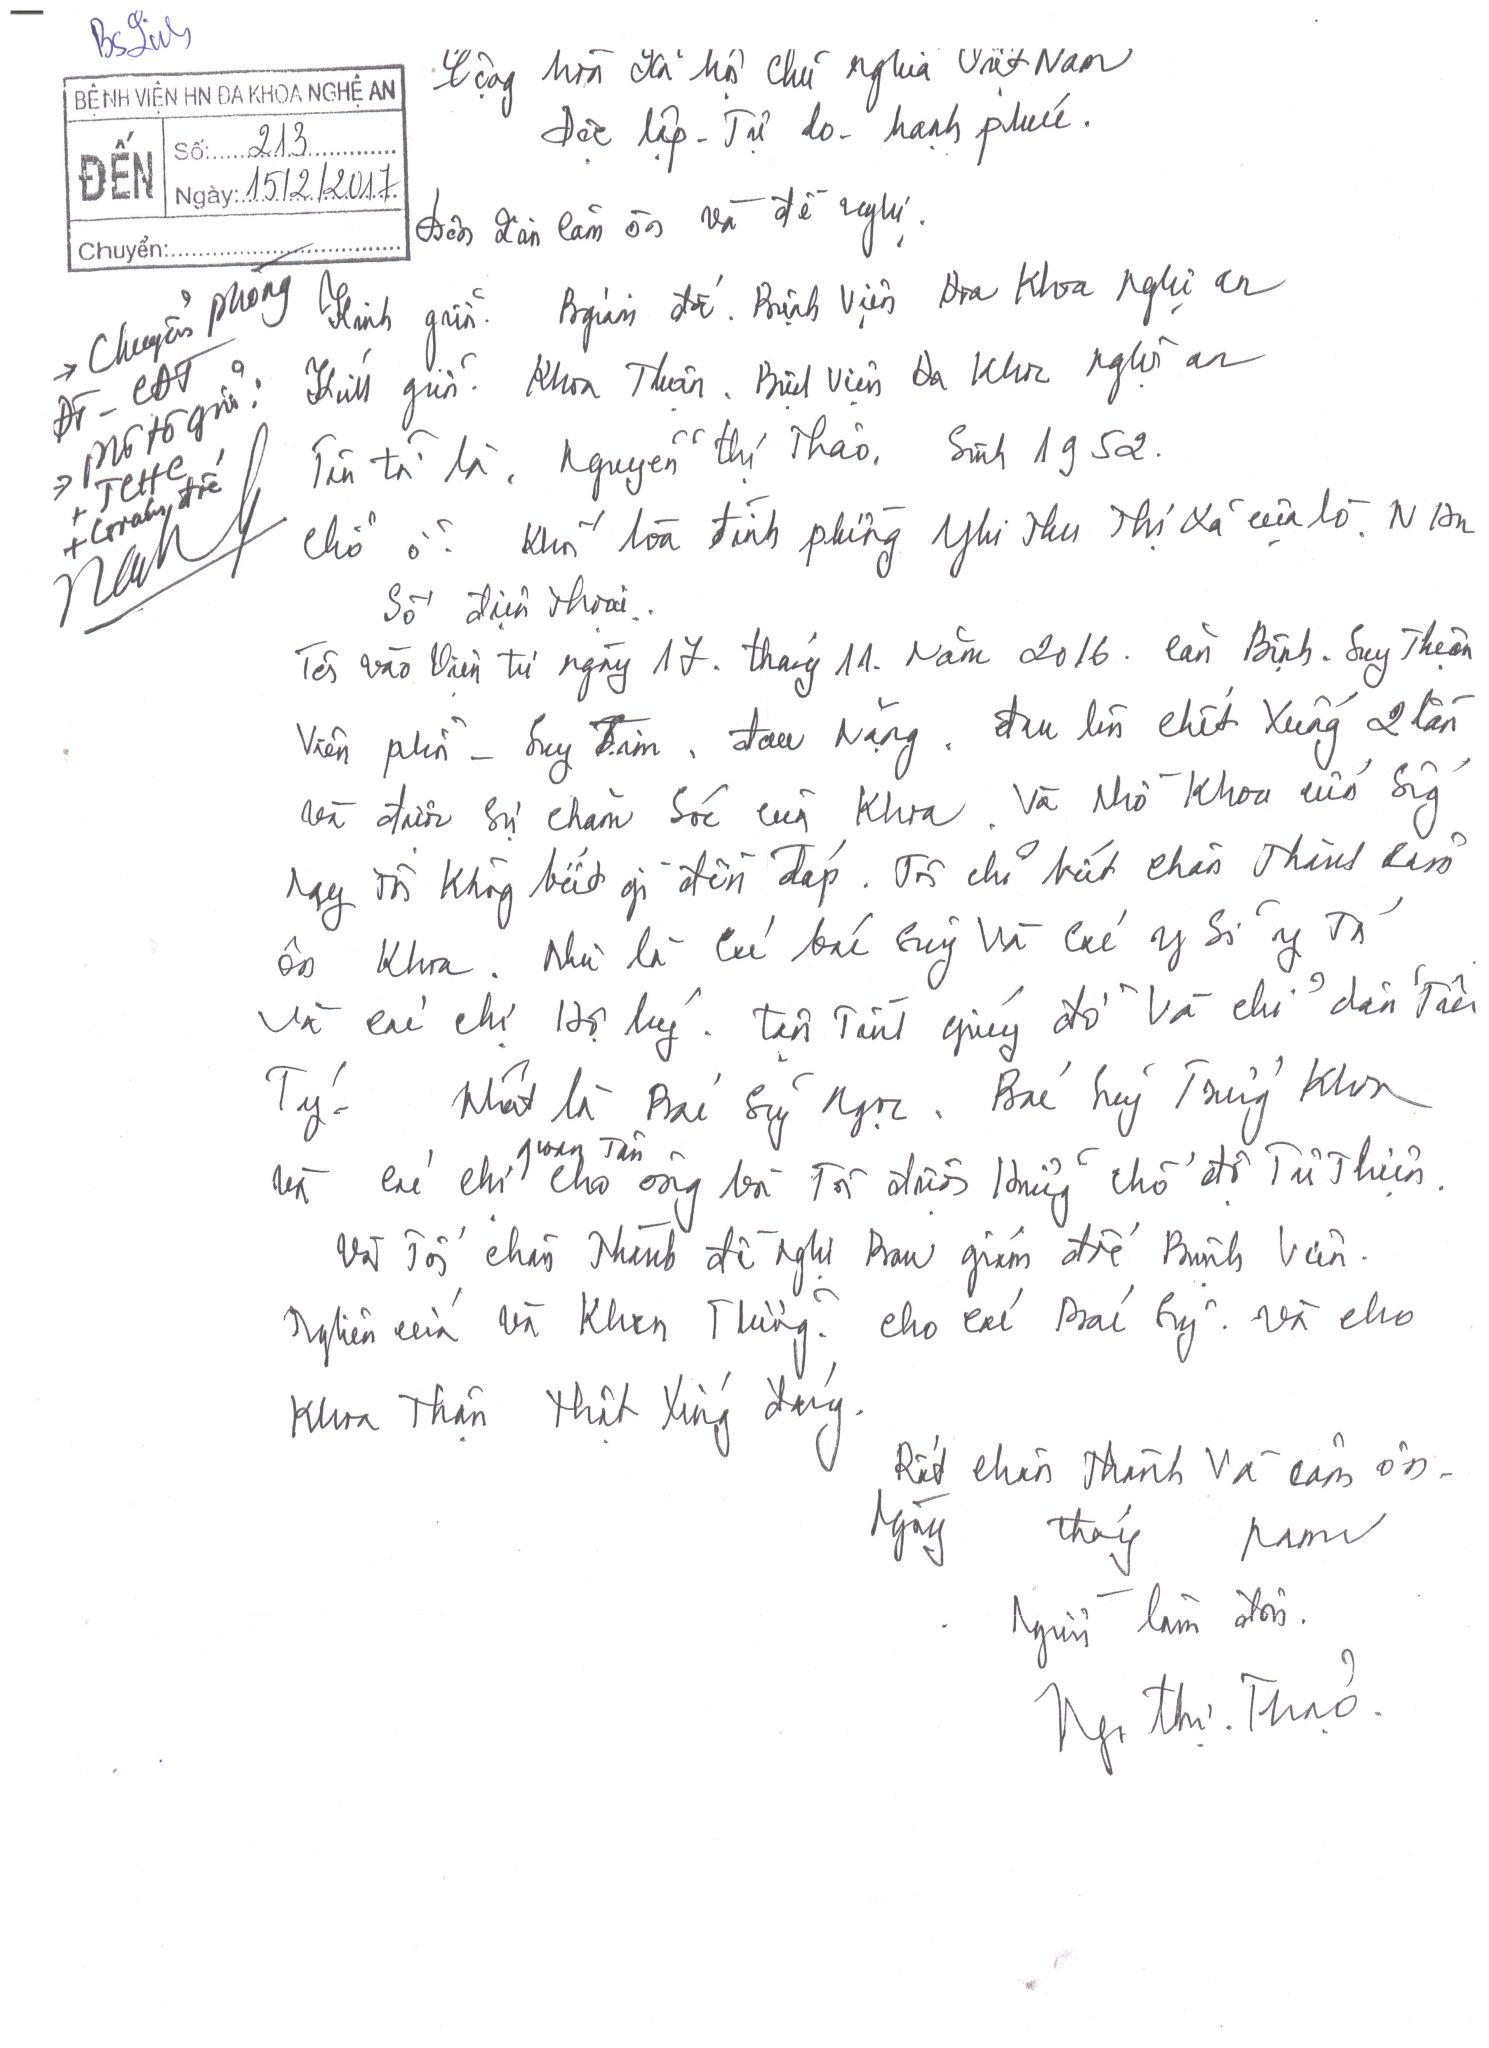 Bs Linh
BỆNH VIỆN HN ĐA KHOA NGHỆ AN
ĐẾN
Số: 213
Ngày: 15/2/2017
Chuyển:
Cộng hòa xã hội chủ nghĩa Việt Nam
Độc lập - Tự do - hạnh phúc.
Đơn xin cảm ơn và đề nghị.
→ Chuyển phòng
ĐT - CĐT
→ Mô tô gửi:
+ TCHC
+ Giám đốc
Kính gửi: B giám đốc. Bệnh Viện Đa Khoa Nghệ an
Kính gửi: Khoa Thận. Bệnh Viện Đa Khoa Nghệ an
Tên tôi là. Nguyễn Thị Thảo. Sinh 1952.
Chổ ở: Khối hòa đình phường Nghi Thu Thị Xã cửa lò. N An
Số điện thoại..
Tôi vào viện từ ngày 17. tháng 11. Năm 2016. căn Bệnh. Suy Thận
Viêm phổi - Suy Tim. đau Nặng. đau lên chết xuống 2 lần
và được sự chăm Sóc của Khoa. và Nhờ Khoa cứu Sống
nay tôi Không biết gì đền đáp. Tôi chỉ biết chân Thành cảm
ơn Khoa. Như là các bác Sỹ Và các y Sĩ y Tá
Và các chị Hộ lý. tận Tình giúp đỡ Và chỉ dẫn Tân
Tý. Nhất là Bác Sỹ Ngọc. Bác Sỹ Trưởng Khoa
và các chị quan Tân cho ông bà Tôi được Hưởng chố độ Từ Thiện.
Vậy Tôi chân Thành đề nghị Ban giám đốc Bệnh Viện.
Nghiên cứu và Khen Thưởng. cho các Bác Sỹ. và cho
Khoa Thận thật xứng đáng.
Rất chân thành Và cảm ơn -
Ngày tháng năm
Người làm đơn.
Ng. Thị. Thảo.